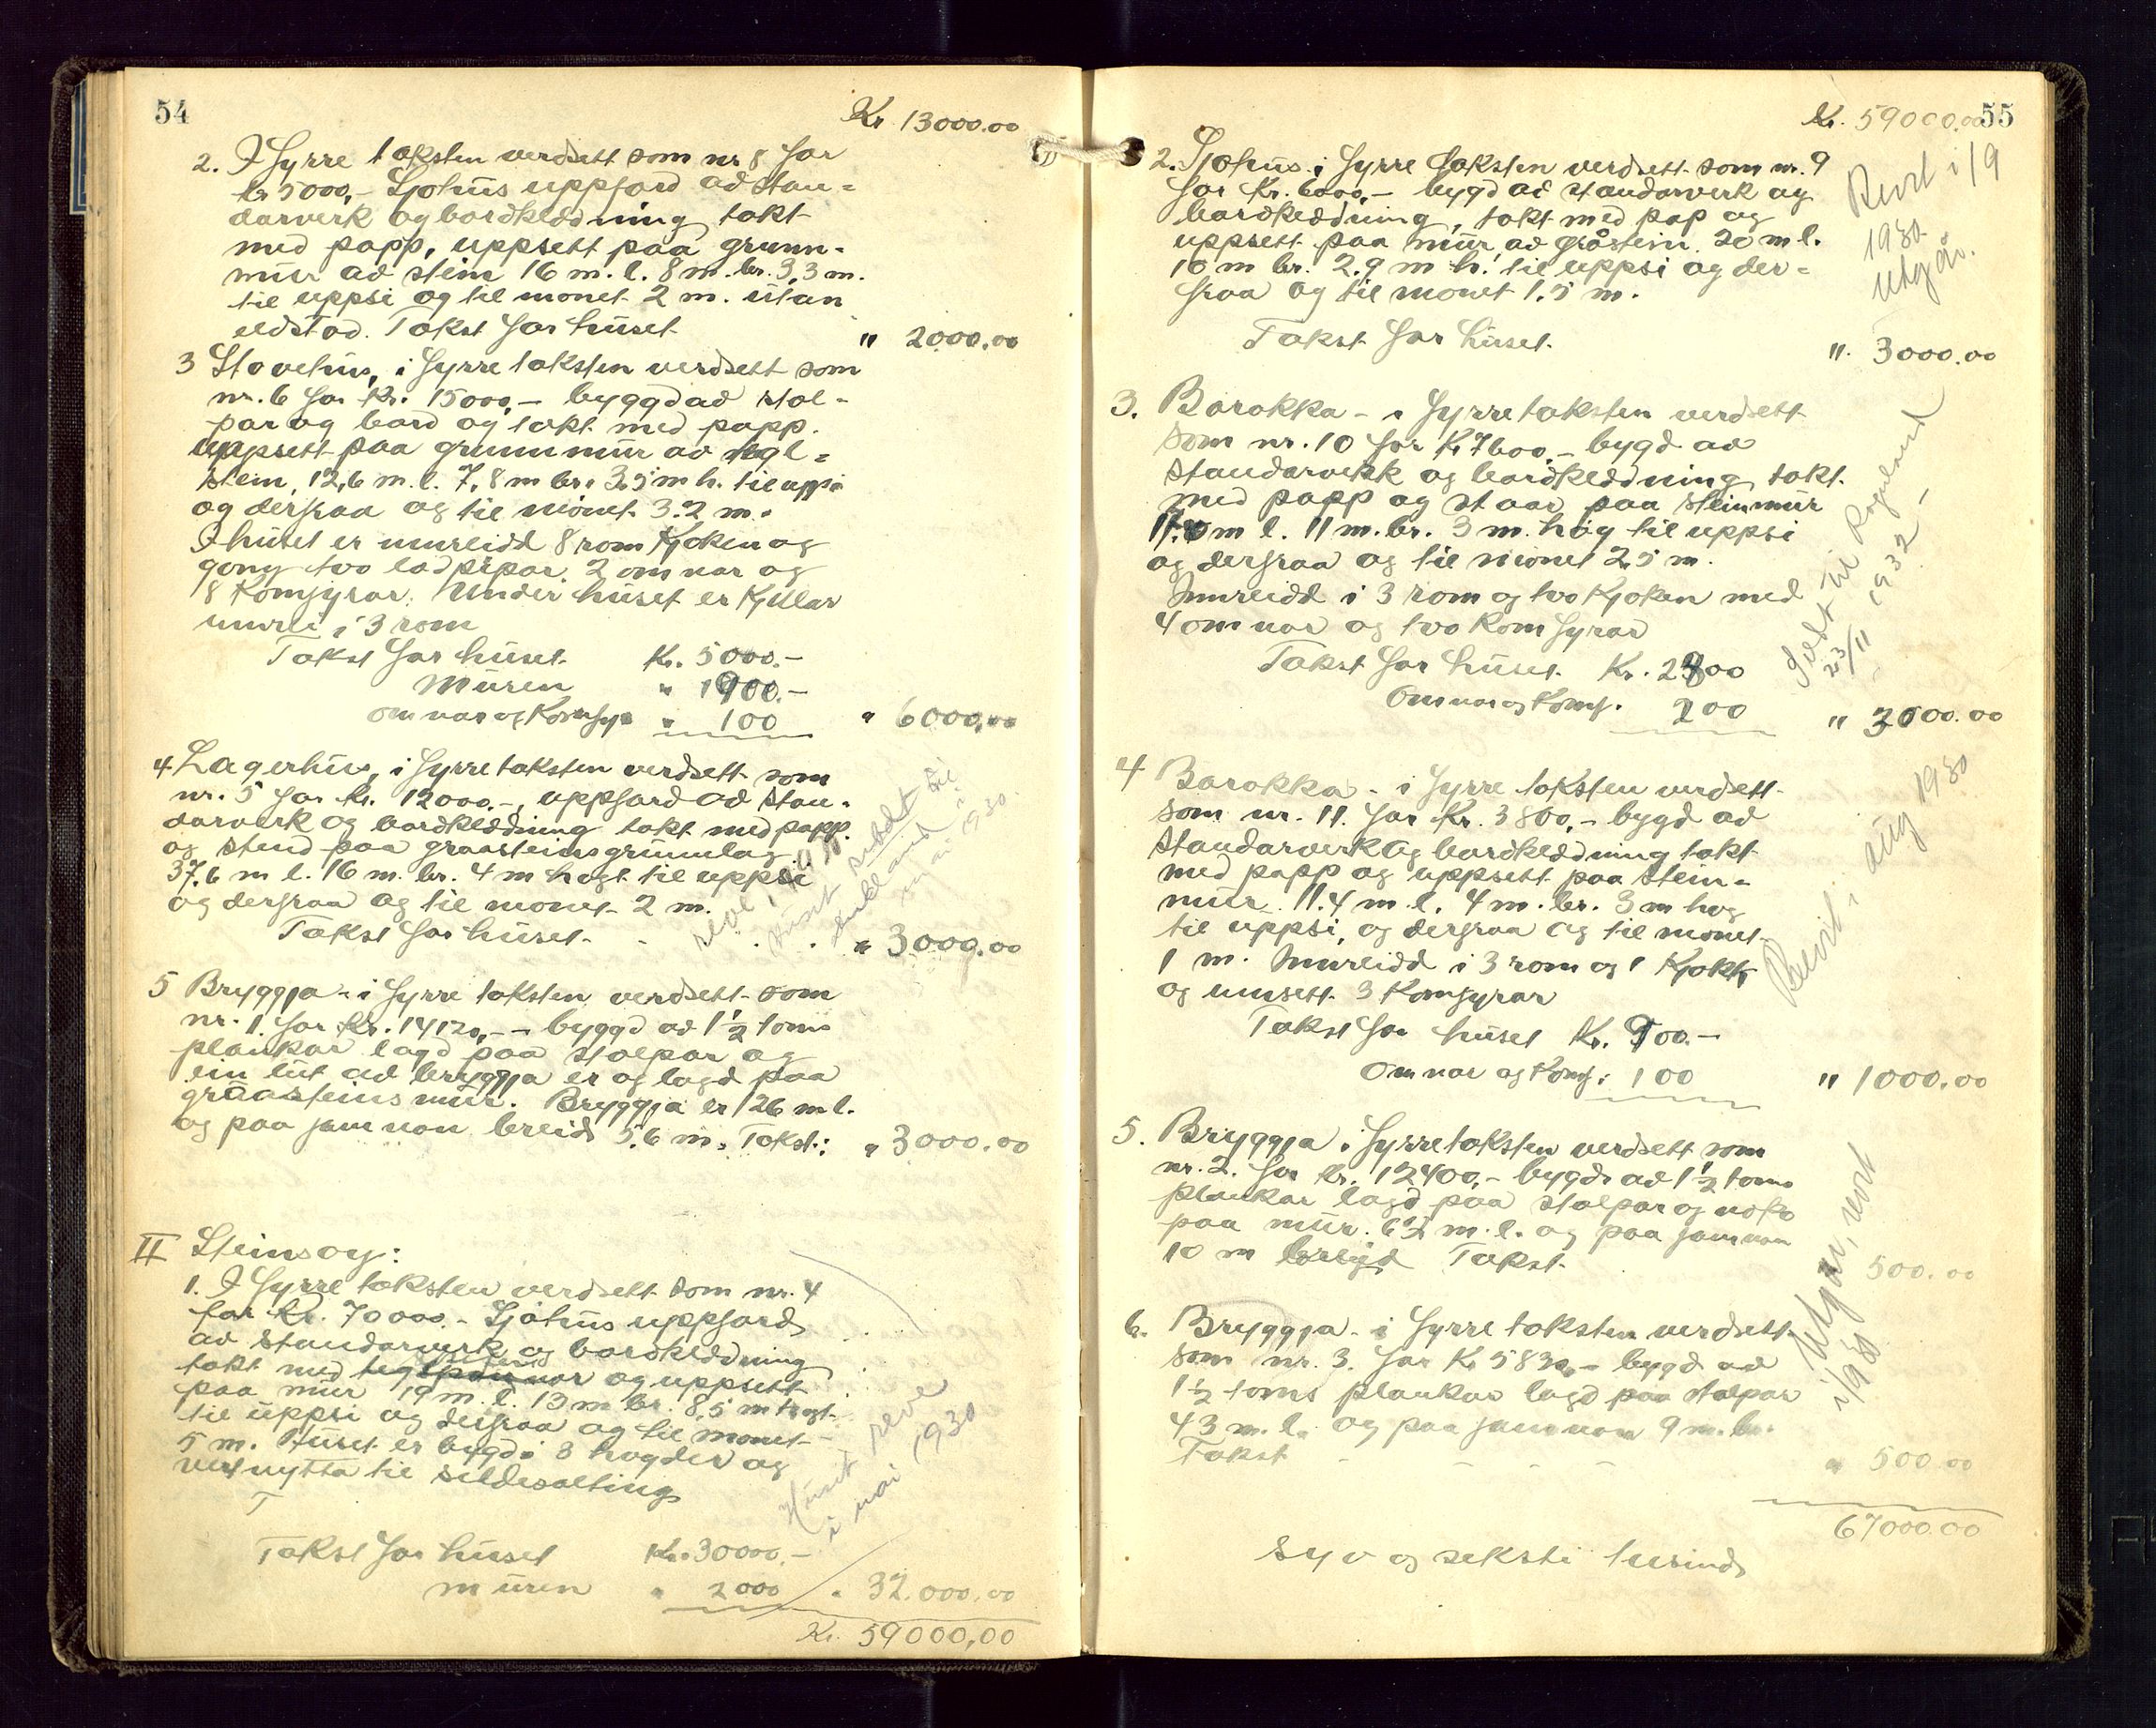 54
Kr 13000.00
2. I fyrre taksten verdsett som nr 8 for
kr 5000,- Sjohus uppford ad stan-
darverk og bordkledning takt
med papp, uppsett paa grunn-
mur ad stein 16 m. l. 8 m. br. 3,3 m.
til uppsi og til monet 2 m. utan
eldstad. Takst for huset " 2000.00
3 Stovehus, i fyrre taksten verdsett som
nr. 6 for Kr. 15000,- byggd ad stol-
par og bord og takt med papp.
uppsett paa grunnmur av tegl-
stein, 12,6 m. l. 7,8 m br. 3,5 m h. til uppsi
og derfraa og til monet 3.2 m.
I huset er innreidd 8 rom Kjoken og
gong tvo ladpipar. 2 omnar og
8 Komfyrar. Under huset er Kjellar
innrei i 3 rom
Takst for huset Kr. 5000.-
Muren " 1900.-
omnar og Komfyr " 100 " 6000,00
4 Lagerhus, i fyrre taksten verdsett som
nr. 5 for Kr. 12000.-, uppford ad stan-
darverk og bordkledning takt med papp.
og stend paa graasteinsgrunnlag
37.6 m l. 16 m. br. 4 m hogt til uppsi
og derfraa og til monet 2 m.
Takst for huset - . . . " 3000.00
huset seldt til
i 1930.
5 Bryggja - i fyrre taksten verdsett som
nr. 1. for Kr. 14120,- - byggd ad 1 1/2 toms
plankar lagd paa stolpar og
ein lut ad bryggja er og lagd paa
graasteins mur. Bryggja er 126 m l.
og paa jamnan breid 5.6 m. Takst: " 3000.00
II Steinsoy:
1. I fyrre taksten verdsett som nr. 4
for Kr. 70000.- Sjøhus uppford
ad standarverk og bordkledning
takt med og uppsett
paa mur 19 m. l. 13 m br. 8,5 m hogt
til uppsi og derfraa og til monet
5 m. Huset er bygd i 3 hogder og
vert nytta til sildesalting
T
Huset reve
i mai 1930
Takst for huset Kr. 30000.-
muren " 2000 " 32.000.00
Kr. 59000,00
55
Kr. 59000.00
2. Sjohus i fyrre taksten verdsett som nr. 9
for Kr. 6000,- bygd ad standarverk og
bordkledning, takt med pap og
uppsett paa mur ad gråstein. 20 m l.
10 m br. 2.9 m h. til uppsi og der-
fraa og til monet 1.5 m.
Revet i /9
1930.
Utgår.
Takst for huset. ". 3000.00
3. Barakka - i fyrre taksten verdsett
som nr. 10 for Kr 7600,- bygd ad
standarverk og bordkledning takt
med papp og staar paa steinmur
m l. 11 m. br. 3 m. høg til uppsi
og derfraa og til monet 2.5 m.
Innreidd i 3 rom og tvo Kjoken med
4 omnar og tvo Komfyrar
Selt til Rogaland
23/11 1932 -
Takst for huset Kr. 2800
Omnar og Komf. 200 " 3000.00
4 Barakka - i fyrre taksten verdsett
som nr. 11. for Kr. 3800,- bygd ad
standarverk og bordkledning takt
med papp og uppsett paa stein-
mur. 11.4 m. l. 4 m. br. 3 m hog
til uppsi, og derfraa og til monet
1 m. Innreidd i 3 rom og 1 Kjokk
og innsett 3 Komfyrar
Revet i aug 1930
Takst for huset Kr. 900.-
Omnar og Komf: 100 " 1000.00
5. Bryggja i fyrre taksten verdsett som
nr. 2. for Kr. 12400,- bygd ad 1 1/2 toms
plankar lagd paa stolpar og noko
paa mur. 62 m. l. og paa jamnan
10 m breid Takst. 500.00
Utgår, revet
i 1930
6. Bryggja - i fyrre taksten verdsett
som nr. 3. for Kr 5830,- bygd ad
1 1/2 toms plankar lagd paa stolpar
43 m. l. og paa jamnan 9 m. br.
Takst - - - - " 500.00
67000.00
Syv og seksti tusind